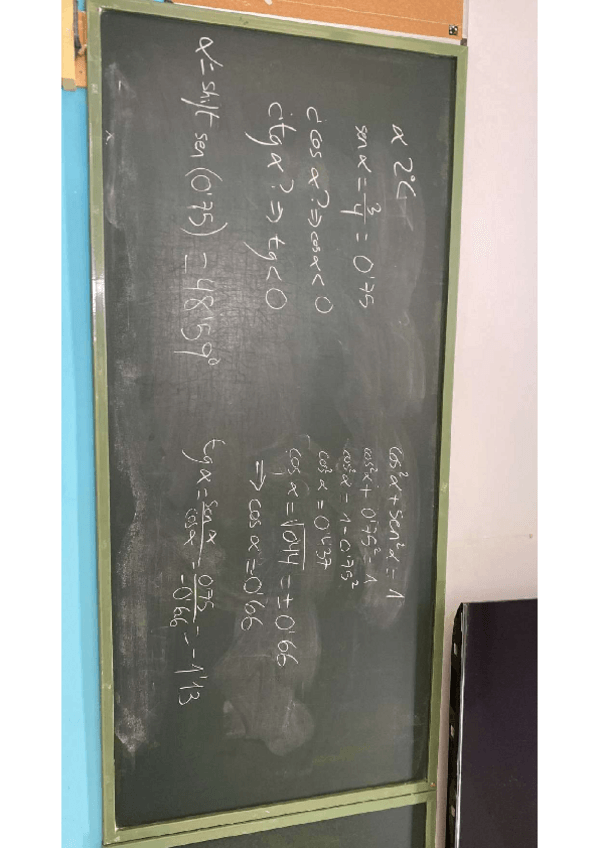 α 2ºC
sen α = 3/4 = 0'75
¿cos α? ⇒ cos α < 0
¿tg α? ⇒ tg < 0
α = shift sen (0'75) = 48'59º
cos²α + sen²α = 1
cos²α + 0'75² = 1
cos²α = 1 - 0'75²
cos²α = 0'437
cos α = √0'44 = ± 0'66
⇒ cos α = 0'66
tg α = sen α / cos α = 0'75 / -0'66 = -1'13